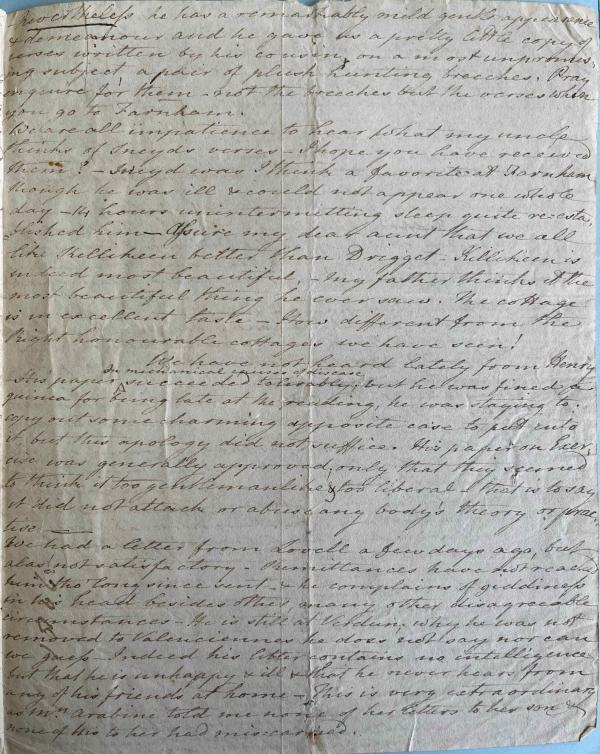 nevertheless he has a remarkably mild gentle appearance
& demeanour and he gave us a pretty little copy of
verses written by his cousin, on a most unpromis,
ing subject a pair of plush hunting breeches. Pray
enquire for them – not the breeches but the verses when
you go to Farnham.
We are all impatience to hear what my uncle
thinks of Sneyds verses – I hope you have received
them? – Sneyd was I think a favorite at Farnham
though he was ill & could not appear one whole
day – 14 hours unintermitting sleep quite re-esta,
blished him – Assure my dear aunt that we all
like Killikeen better than Dregget – Killikeen is
indeed most beautiful, – my father thinks it the
most beautiful thing he ever saw. The cottage
is in excellent taste – How different from the
Right honourable cottages we have seen!
We have not heard lately from Henry
on mechanical causes of disease
– His paper succeeded tolerably, but he was fined a
guinea for being late at the reading, he was staying to
copy out some charming apposite case to put into
it, but this apology did not suffice. His paper on Exer,
cise was generally approved, only that they seemed
to think it too gentlemanlike & too liberal – that is to say
it did not attack or abuse any body's theory or prac,
tise –
We had a letter from Lovell a few days ago, but
alas not satisfactory – Remittances have not reached
him tho' long since sent – & he complains of giddiness
in his head besides other many other disagreeable
circumstances – He is still at Verdun, why he was not
removed to Valenciennes he does not say nor can
we guess – Indeed his letter contains no intelligence
but that he is unhappy & ill & that he never hears from
any of his friends at home – This is very extraordinary
as Mrs Arabine told me none of her letters to her son &
none of his to her had miscarried.